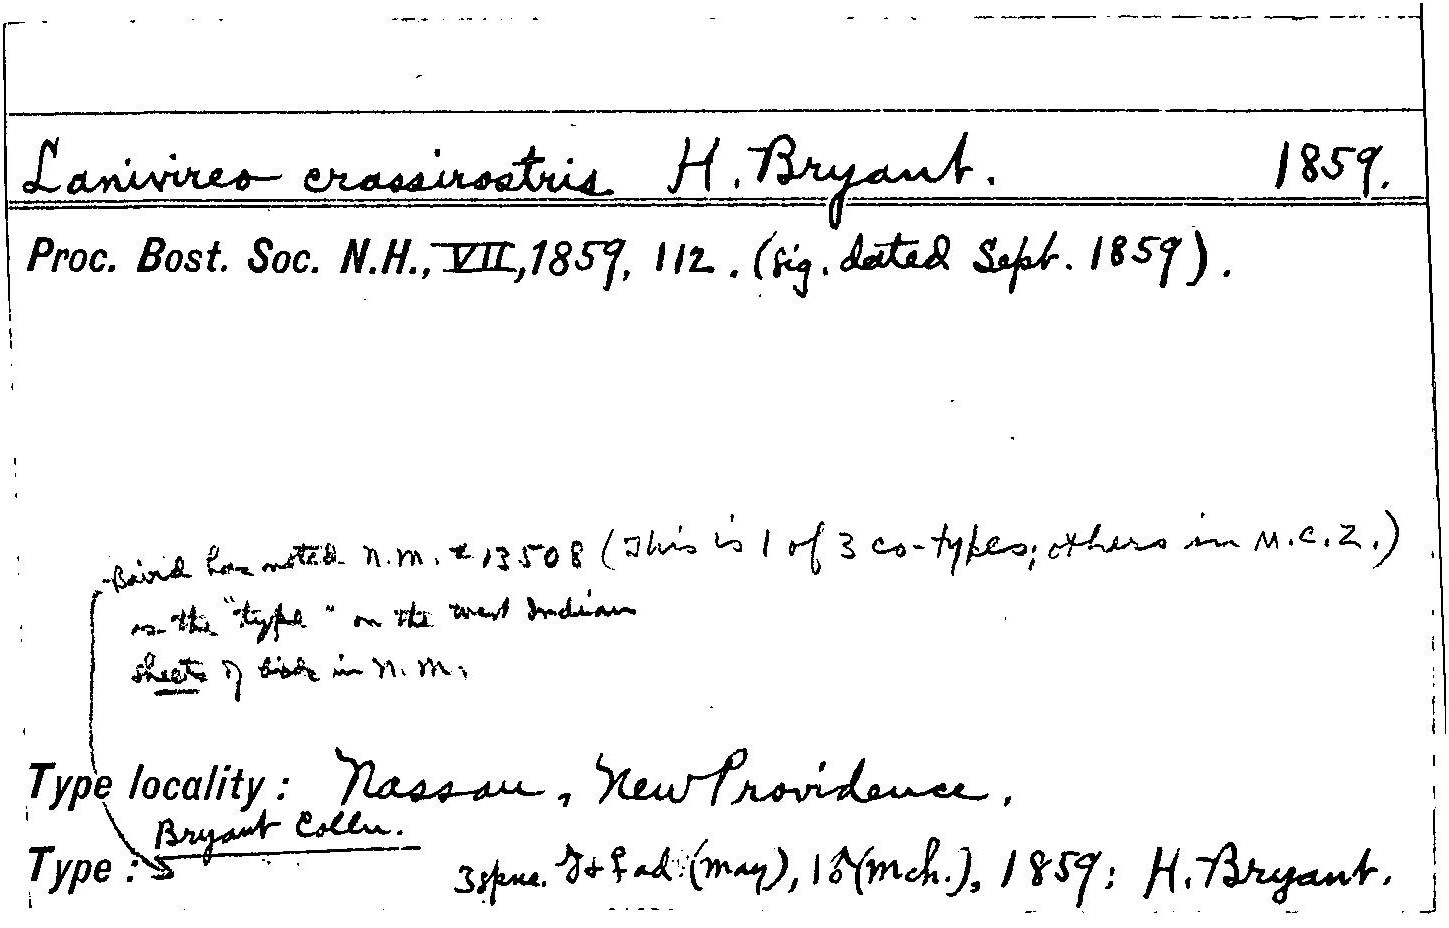 Lanivireo crassirostris H. Bryant. 1859.
Proc. Bost. Soc. N.H., VII, 1859, 112. (sig. dated Sept. 1859).
Baird has noted N.M. # 13508 (This is 1 of 3 co-types; others in M.C.Z.)
as the "type" on the West Indian
sheets of birds in N.M.
Type locality: Nassau, New Providence.
Bryant Colln.
Type: 3 spne. ♂ + ♀ ad. (May), 1 ♂ (Mch.), 1859: H. Bryant.